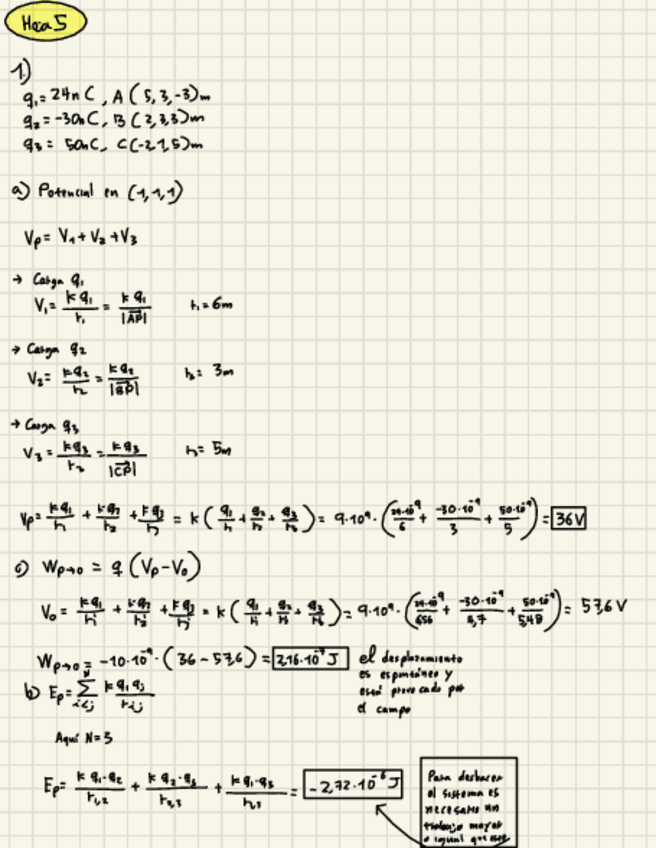 Hoja 5
1)
q₁ = 24nC, A (5, 3, -3)m
q₂ = -30nC, B (2, 3, 3)m
q₃ = 50nC, C (-2, 1, 5)m
a) Potencial en (1,1,1)
Vp = V₁ + V₂ + V₃
→ Carga q₁
V₁ = kq₁/r₁ = kq₁/|AP| r₁ = 6m
→ Carga q₂
V₂ = kq₂/r₂ = kq₂/|BP| r₂ = 3m
→ Carga q₃
V₃ = kq₃/r₃ = kq₃/|CP| r₃ = 5m
Vp = kq₁/r₁ + kq₂/r₂ + kq₃/r₃ = k (q₁/r₁ + q₂/r₂ + q₃/r₃) = 9·10⁹ · (24·10⁻⁹/6 + -30·10⁻⁹/3 + 50·10⁻⁹/5) = 36V
c) Wp→o = q (Vp - Vo)
Vo = kq₁/r₁' + kq₂/r₂' + kq₃/r₃' = k (q₁/r₁' + q₂/r₂' + q₃/r₃') = 9·10⁹ · (24·10⁻⁹/6,56 + -30·10⁻⁹/4,7 + 50·10⁻⁹/5,48) = 57,6 V
Wp→o = -10·10⁻⁹ · (36 - 57,6) = 2,16·10⁻⁷ J
el desplazamiento
es espontáneo y
está provocado por
el campo
b) Ep = Σ i<j kqᵢqⱼ/rᵢⱼ
Aquí N=3
Ep = k q₁·q₂/r₁,₂ + k q₂·q₃/r₂,₃ + kq₁·q₃/r₁,₃ = -2,72·10⁻⁶ J
Para deshacer
el sistema es
necesario un
trabajo mayor
o igual que ese